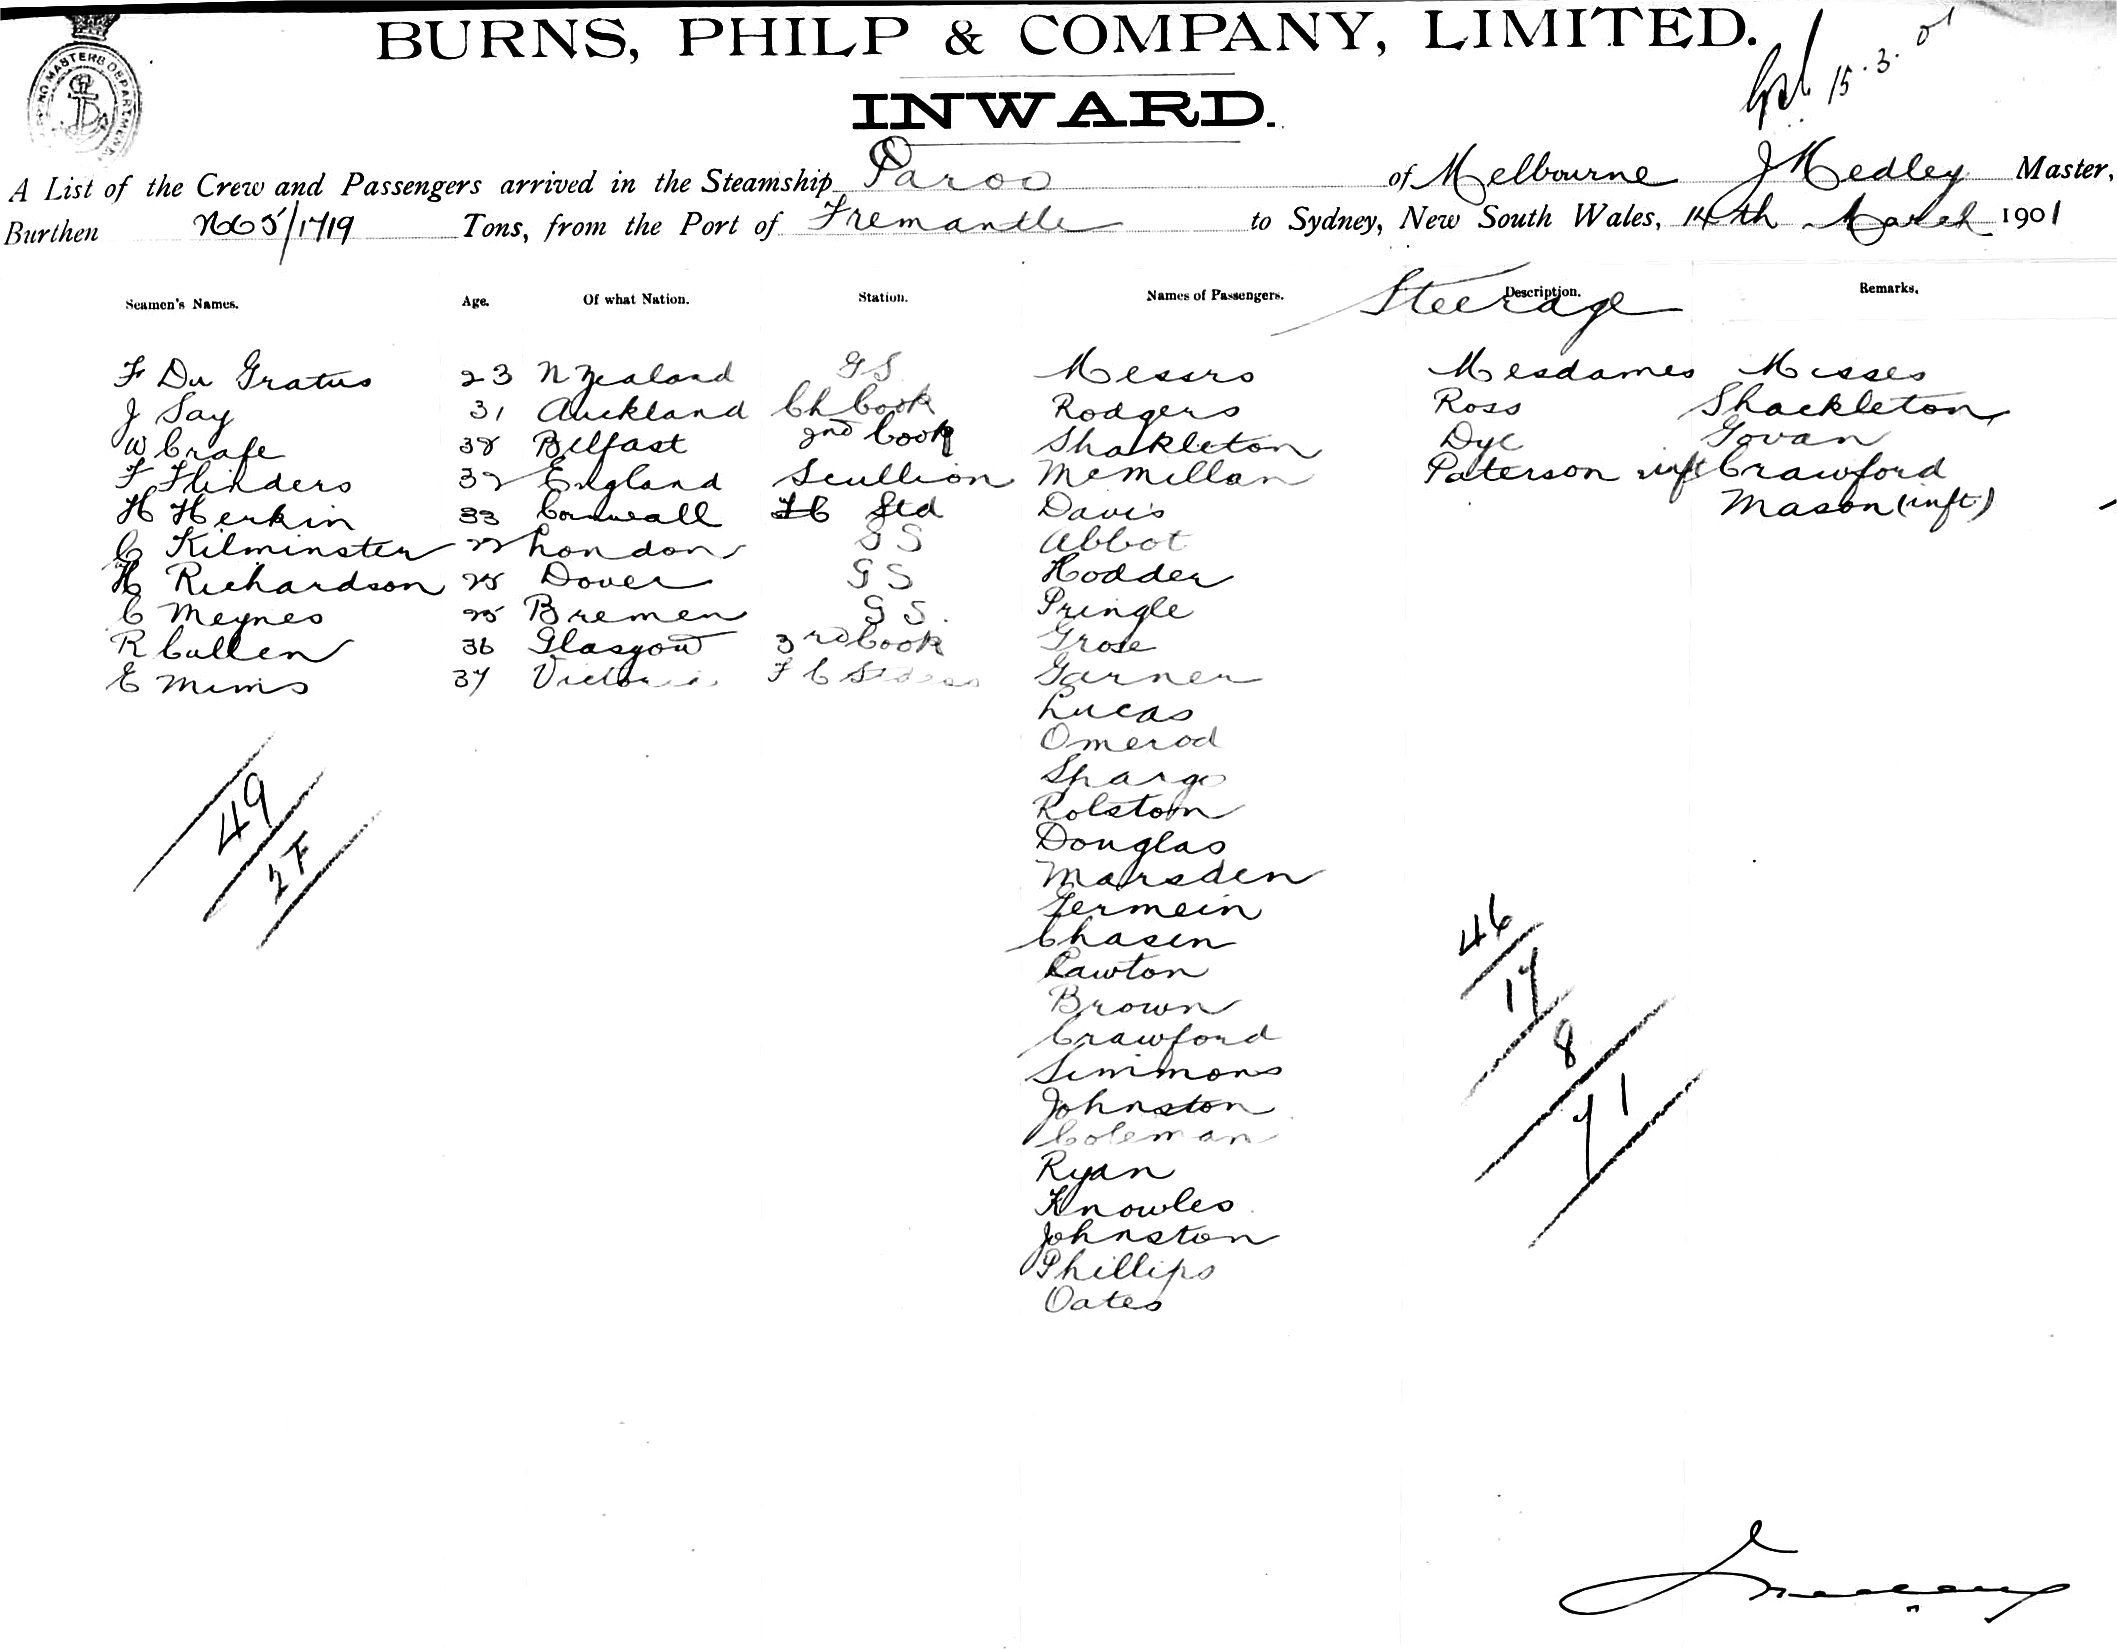 BURNS, PHILP & COMPANY, LIMITED.
15.3.01
INWARD.
A List of the Crew and Passengers arrived in the Steamship Paroo of Melbourne J Medley Master,
Burthen 1719 Tons, from the Port of Fremantle to Sydney, New South Wales, 14th March 1901
Seamen's Names. Age. Of what Nation. Station. Names of Passengers. Steerage Description. Remarks.
F Du Gratus 23 N Zealand GS Messrs Mesdames Misses
J Say 31 Auckland Ch Cook Rodgers Ross Shackleton
W Crafe 38 Belfast 2nd Cook Shakleton Dye Govan
F Flinders 32 England Scullion McMillan Paterson inft Crawford
H Herkin 33 Cornwall FC Std Davis Mason (inft)
C Kilminster 22 London GS Abbot
H Richardson 25 Dover GS Hodder
C Meynes 25 Bremen GS. Pringle
R Cullen 36 Glasgow 3rd Cook Grose
E Mims 37 Victoria F C Stdess Garner
Lucas
Omerod
Spargo
Rolston
Douglas
Marsden
Germein
Chasen
Lawton
Brown
Crawford
Simmons
Johnston
Coleman
Ryan
Knowles
Johnston
Phillips
Oates
49
2F
46
17
8
71